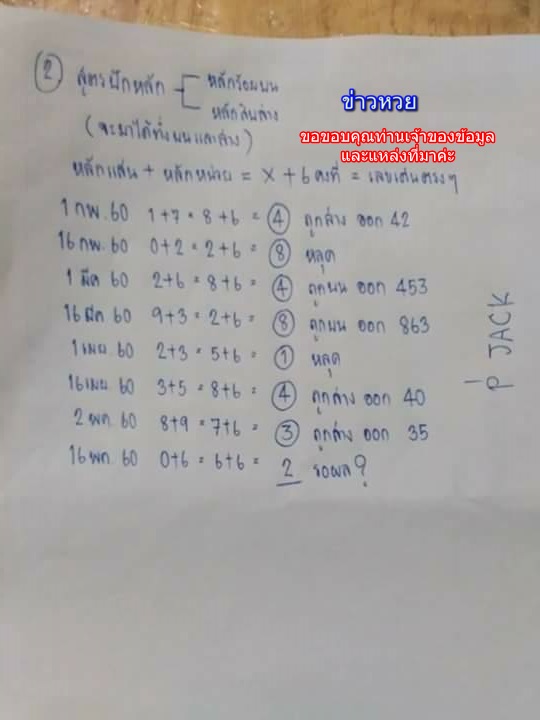 (2) สูตรปักหลัก
หลักร้อยบน
หลักสิบล่าง
(จะมาได้ทั้งบนและล่าง)
ข่าวหวย
ขอขอบคุณท่านเจ้าของข้อมูล
และแหล่งที่มาค่ะ
หลักแสน + หลักหน่วย = X + 6 คงที่ = เลขเด่นตรงๆ
1 กพ. 60 1+7 = 8+6 = 4 ถูกล่าง ออก 42
16 กพ. 60 0+2 = 2+6 = 8 หลุด
1 มีค 60 2+6 = 8+6 = 4 ถูกบน ออก 453
16 มีค 60 9+3 = 2+6 = 8 ถูกบน ออก 863
1 เมย 60 2+3 = 5+6 = 1 หลุด
16 เมย 60 3+5 = 8+6 = 4 ถูกล่าง ออก 40
2 พค. 60 8+9 = 7+6 = 3 ถูกล่าง ออก 35
16 พค. 60 0+6 = 6+6 = 2 รอผล ?
P JACK